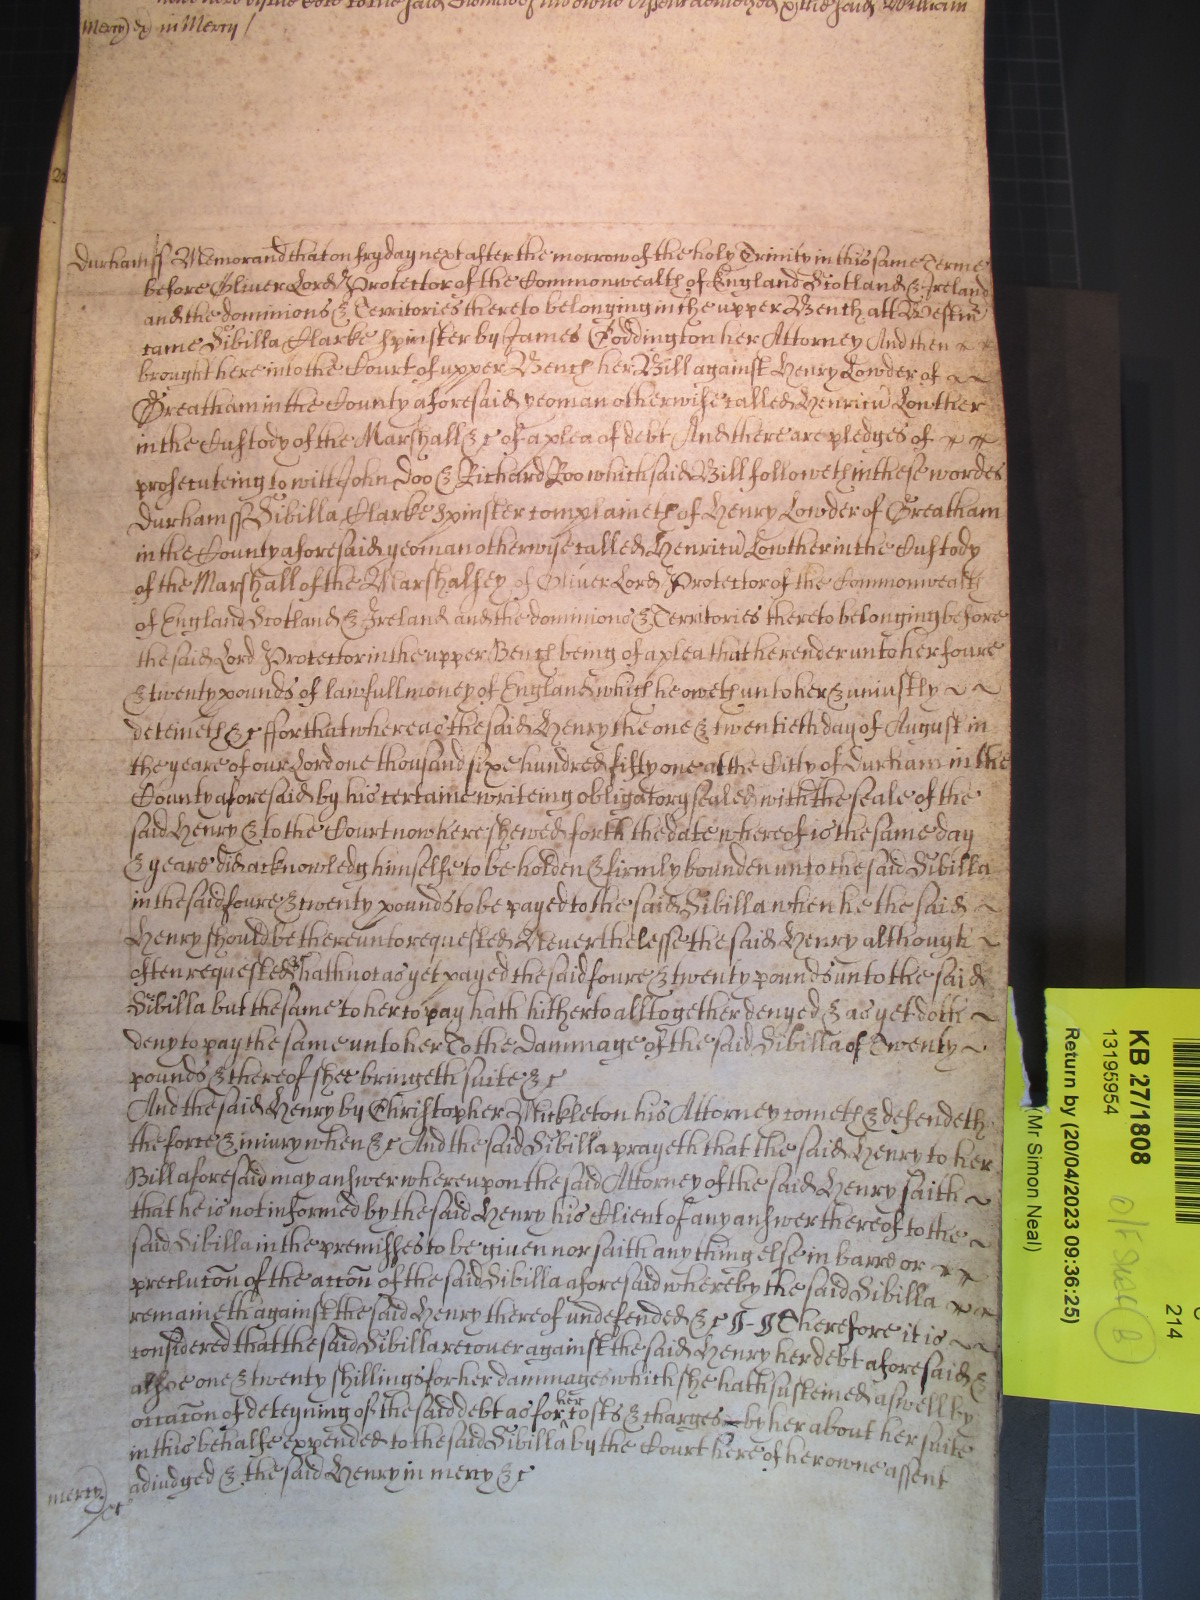 said William
Mercy &c in Mercy /
Durham ss Memorand that on fryday next after the morrow of the holy Trinity in this same Terme
before Oliver Lord Protector of the Commonwealth of England Scotland & Ireland
and the dominions & Territories thereto belonging in the upper Bench att Westm
came Sibilla Clarke Spinster by James Coddington her Attorney And then
brought here into the Court of upper Bench her Bill against Henry Lowder of
Greatham in the County aforesaid yeoman otherwise called Henricu Lowther
in the Custody of the Marshall &c of a plea of debt And there are pledges of
prosecuteing to witt John Doo & Richard Roo which said Bill followeth in these wordes
Durham ss Sibilla Clarke Spinster complaineth of Henry Lowder of Greatham
in the County aforesaid yeoman otherwise called Henricu Lowther in the Custody
of the Marshall of the Marshalsey of Oliver Lord Protector of the Commonwealth
of England Scotland & Ireland and the dominions & Territories thereto belonging before
the said Lord Protector in the upper Bench being of a plea that he render unto her foure
& twenty pounds of lawfull money of England which he oweth unto her & uniustly
deteineth &c ffor that whereas the said Henry the one & twentieth day of August in
the yeare of our Lord one thousand sixe hundred fifty one at the Citty of Durham in the
County aforesaid by his certaine writeing obligatory sealed with the seale of the
said Henry & to the Court now here shewed forth the date whereof is the same day
& yeare did acknowledg himselfe to be holden & firmly bounden unto the said Sibilla
in the said foure & twenty pounds to be payed to the said Sibilla when he the said
Henry should be thereunto requested Neverthelesse the said Henry although
often requested &c hath not as yet payed the said foure & twenty pounds unto the said
Sibilla but the same to her to pay hath hitherto alltogether denyed & as yet doth
deny to pay the same unto her To the Dammage of the said Sibilla of Twenty
pounds & thereof shee bringeth suite &c
And the said Henry by Christopher Mickleton his Attorney cometh & defendeth
the force & iniury when &c And the said Sibilla prayeth that the said Henry to her
Bill aforesaid may answer whereupon the said Attorney of the said Henry saith
that he is not informed by the said Henry his Client of any answer thereof to the
said Sibilla in the premisses to be given nor saith any thing else in barre or
preclucon of the accon of the said Sibilla aforesaid whereby the said Sibilla
remaineth against the said Henry thereof undefended &c Therefore it is
considered that the said Sibilla recover against the said Henry her debt aforesaid &
alsoe one & twenty shillings for her dammages which she hath susteined aswell by
occacon of deteyning of the said debt as for her costs & charges by her about her suite
in this behalfe expended to the said Sibilla by the Court here of her owne assent
adiudged & the said Henry in mercy &c
mercy
&c
KB 27/1808
13195954
Return by (20/04/2023 09:36:25)
(Mr Simon Neal)
214